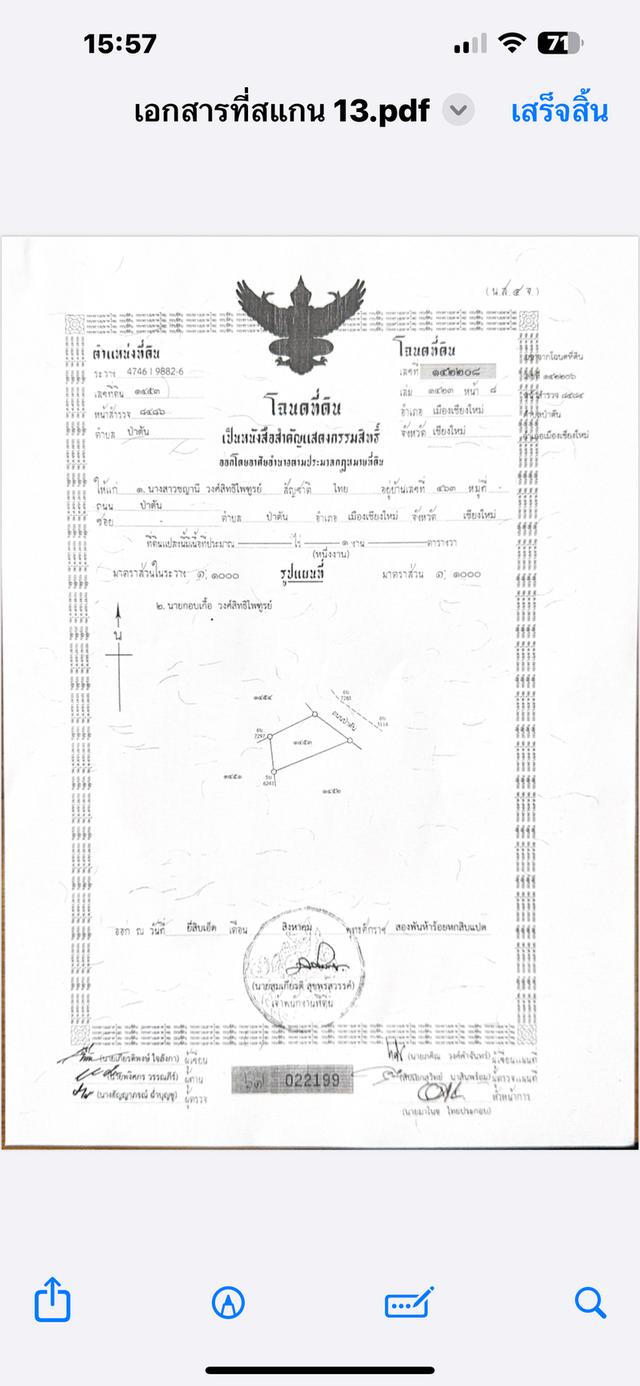 15:57
71
เอกสารที่สแกน 13.pdf
เสร็จสิ้น
(น.ส. ๔ จ.)
ตำแหน่งที่ดิน
ระวาง 4746 I 9882-6
เลขที่ดิน ๑๔๕๓
หน้าสำรวจ ๘๔๘๖
ตำบล ป่าตัน
โฉนดที่ดิน
เลขที่ ๑๔๒๒๐๘
เล่ม ๑๔๒๓ หน้า ๘
อำเภอ เมืองเชียงใหม่
จังหวัด เชียงใหม่
โฉนดที่ดิน
เป็นหนังสือสำคัญแสดงกรรมสิทธิ์
ออกโดยอาศัยอำนาจตามประมวลกฎหมายที่ดิน
ให้แก่ ๑. นางสาวชญานี วงศ์สิทธิไพฑูรย์ สัญชาติ ไทย อยู่บ้านเลขที่ ๔๖๓ หมู่ที่ -
ถนน ป่าตัน
ซอย - ตำบล ป่าตัน อำเภอ เมืองเชียงใหม่ จังหวัด เชียงใหม่
ที่ดินแปลงนี้มีเนื้อที่ประมาณ ไร่ ๑ งาน ตารางวา
(หนึ่งงาน)
มาตราส่วนในระวาง ๑: ๑๐๐๐ รูปแผนที่ มาตราส่วน ๑: ๑๐๐๐
๒. นายกอบเกื้อ วงศ์สิทธิไพฑูรย์
น
๑๔๕๔
7281
ถนนป่าตัน
7297
๑๔๕๓
๑๔๕๑
6241
๑๔๕๒
ออก ณ วันที่ ยี่สิบเอ็ด เดือน สิงหาคม พุทธศักราช สองพันห้าร้อยหกสิบแปด
เจ้าพนักงานที่ดิน
ผู้เขียน
ผู้ทาน
ผู้ตรวจ
022199
ผู้เขียนแผนที่
ผู้ตรวจแผนที่
หัวหน้าการ
(นายมาโนช ไทยประกอบ)